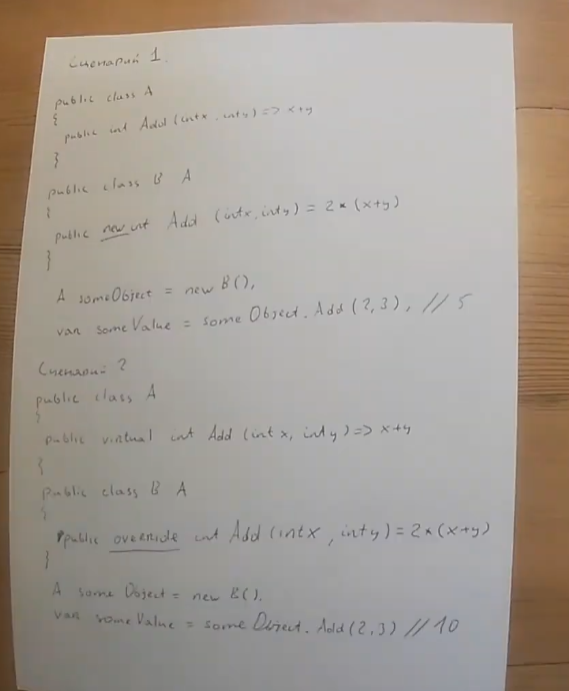 Сценарий 1.
public class A
{
public int Add (int x, int y) => x+y
}
public class B A
{
public new int Add (int x, int y) = 2 * (x+y)
}
A someObject = new B(),
var someValue = some Object. Add (2,3), // 5
Сценарий 2
public class A
{
public virtual int Add (int x, int y) => x+y
{
public class B A
{
public override int Add (int x, int y) = 2*(x+y)
}
A some Object = new B().
var someValue = some Object. Add (2,3) // 10